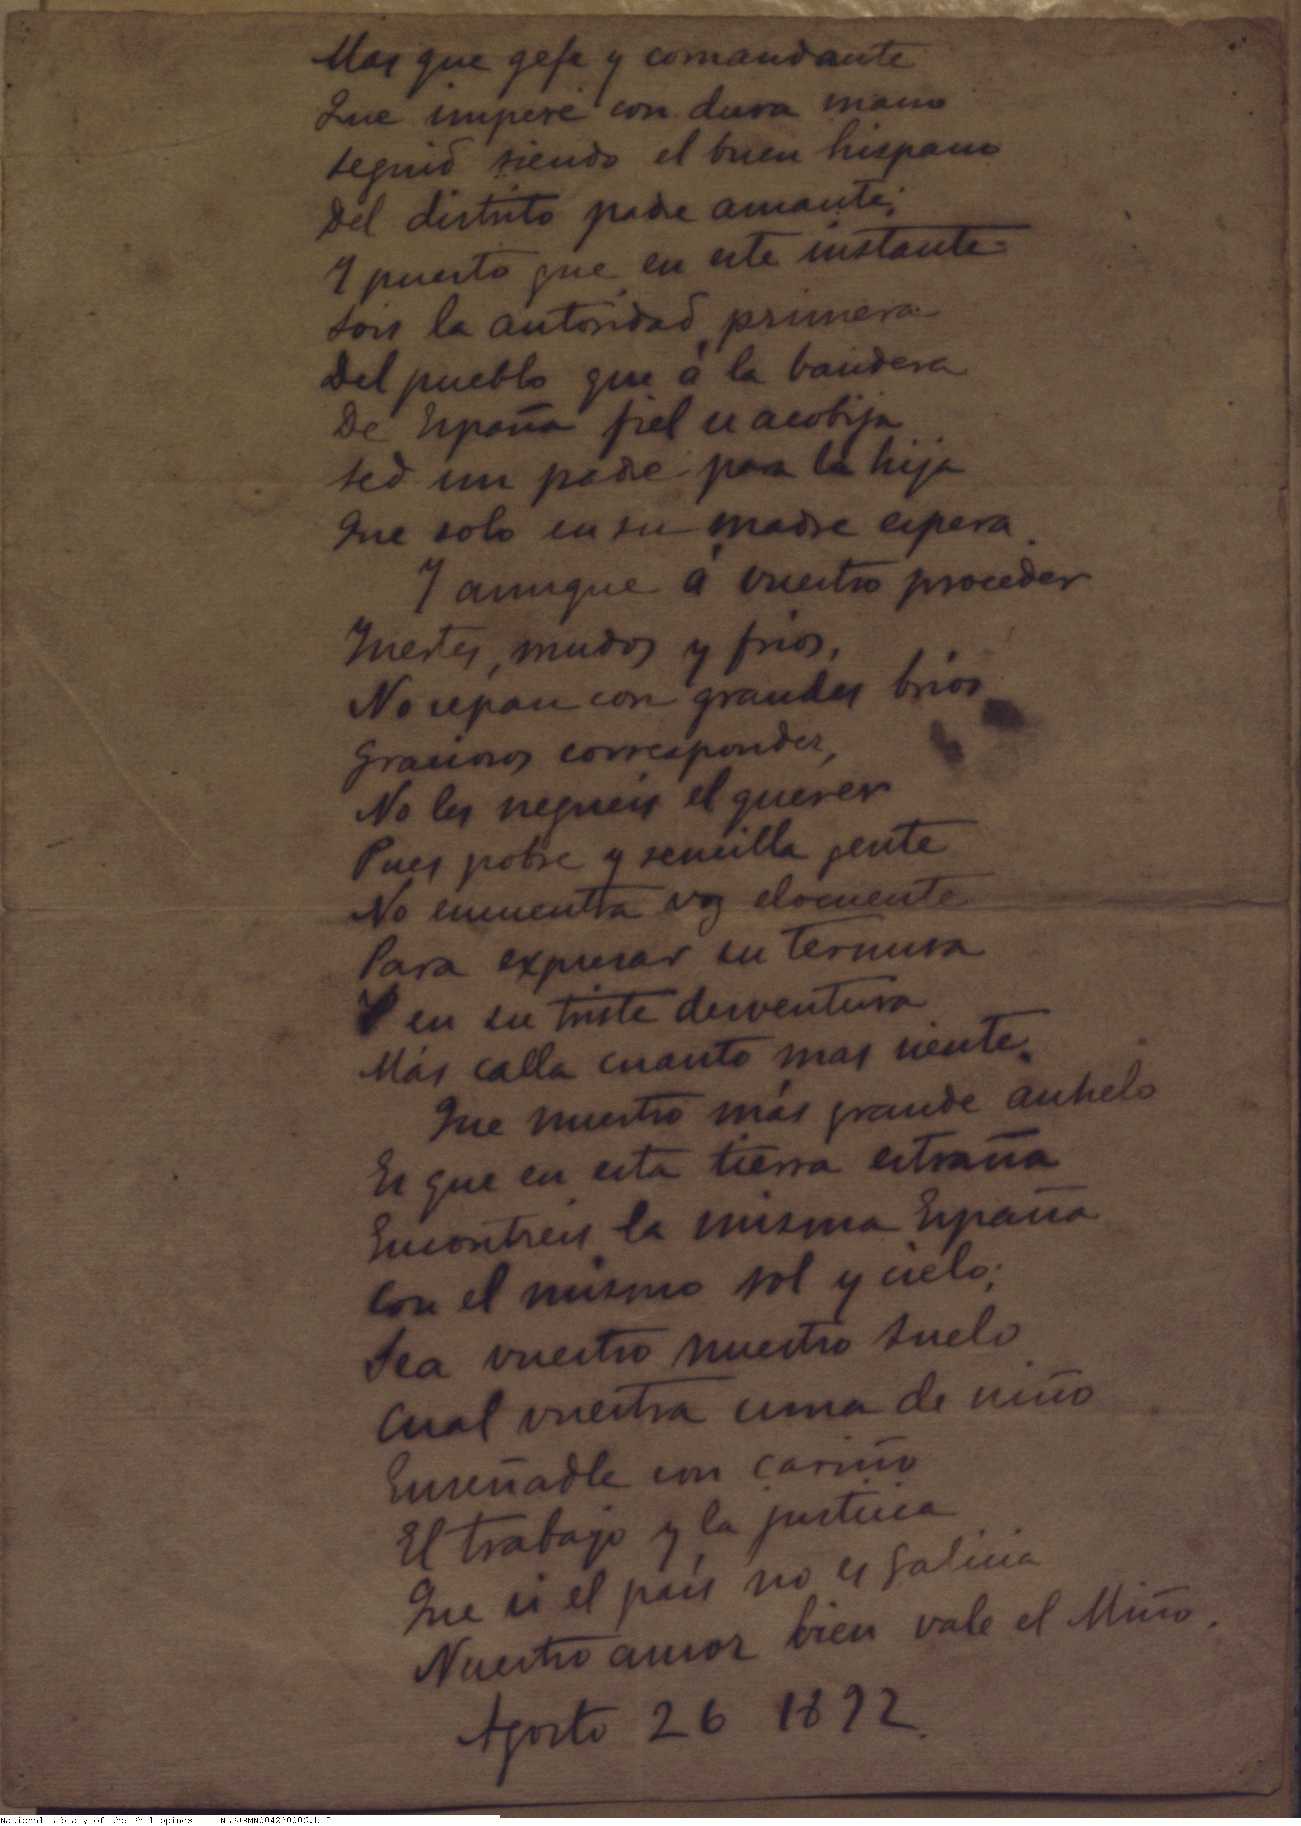 Mas que gefe y comandante
Que impere con dura mano
seguid siendo el buen hispano
Del distrito padre amante;
Y puesto que en este instante
sois la autoridad primera
Del pueblo que á la bandera
De España fiel se acobija
sed un padre para la hija
Que solo en su madre espera.
Y aunque á vuestro proceder
Inertes, mudos y frios,
No sepan con grandes brios
graciosos corresponder,
No les negueis el querer
Pues pobre y sencilla gente
No encuentra voz elocuente
Para expresar su ternura
Y en su triste desventura
Más calla cuanto mas siente.
Que nuestro más grande anhelo
Es que en esta tierra estraña
Encontreis la misma España
Con el mismo sol y cielo;
Sea vuestro nuestro suelo
Cual vuestra cuna de niño
Enseñadle con cariño
El trabajo y la justicia
Que si el país no es Galicia
Nuestro amor bien vale el Miño.
Agosto 26 1892.
National Library of the Philippines